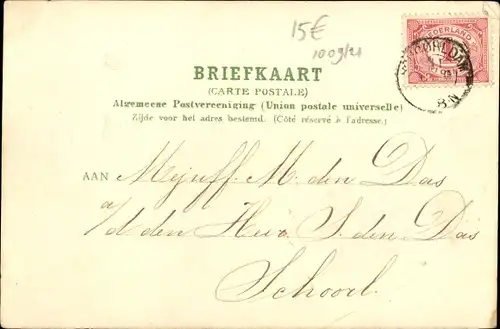 15€
1009/21
NEDERLAND
8-N
BRIEFKAART
(CARTE POSTALE)
Algemeene Postvereeniging (Union postale universelle)
Zijde voor het adres bestemd. (Côté réservé à l'adresse.)
AAN Mejuff. M. den Das
a/d den Heer S. den Das
Schoorl.